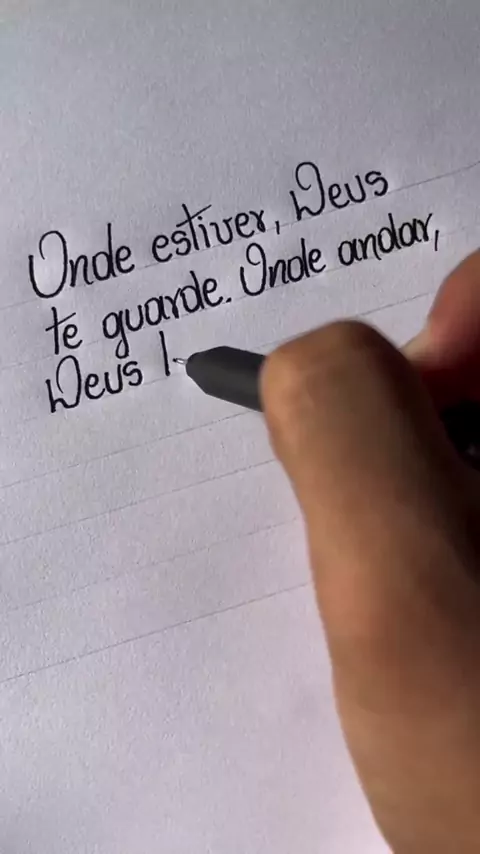 Onde estiver, Deus
te guarde. Onde andar,
Deus l